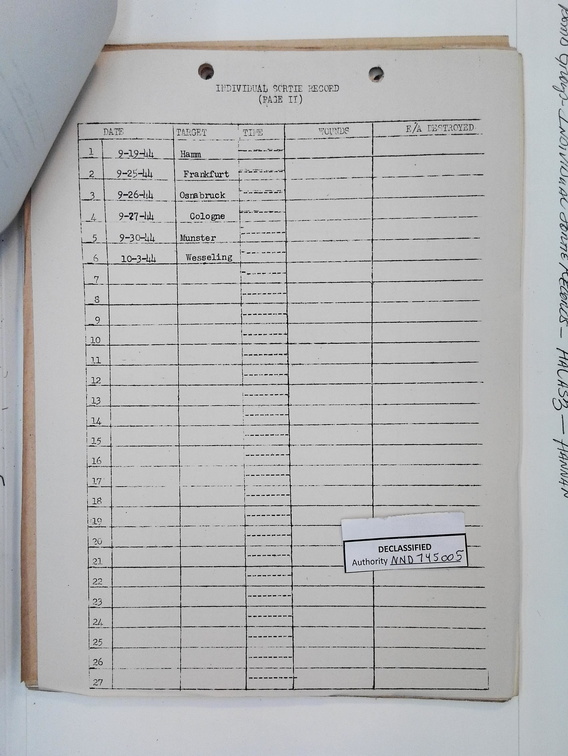 INDIVIDUAL SORTIE RECORD
(PAGE II)
DATE TARGET TIME WOUNDS E/A DESTROYED
1 9-19-44 Hamm
2 9-25-44 Frankfurt
3 9-26-44 Osnabruck
4 9-27-44 Cologne
5 9-30-44 Munster
6 10-3-44 Wesseling
7
8
9
10
11
12
13
14
15
16
17
18
19
20
21
22
23
24
25
26
27
DECLASSIFIED
Authority NND 745005
Bomb Group - Individual Sortie Records - - HANNAN